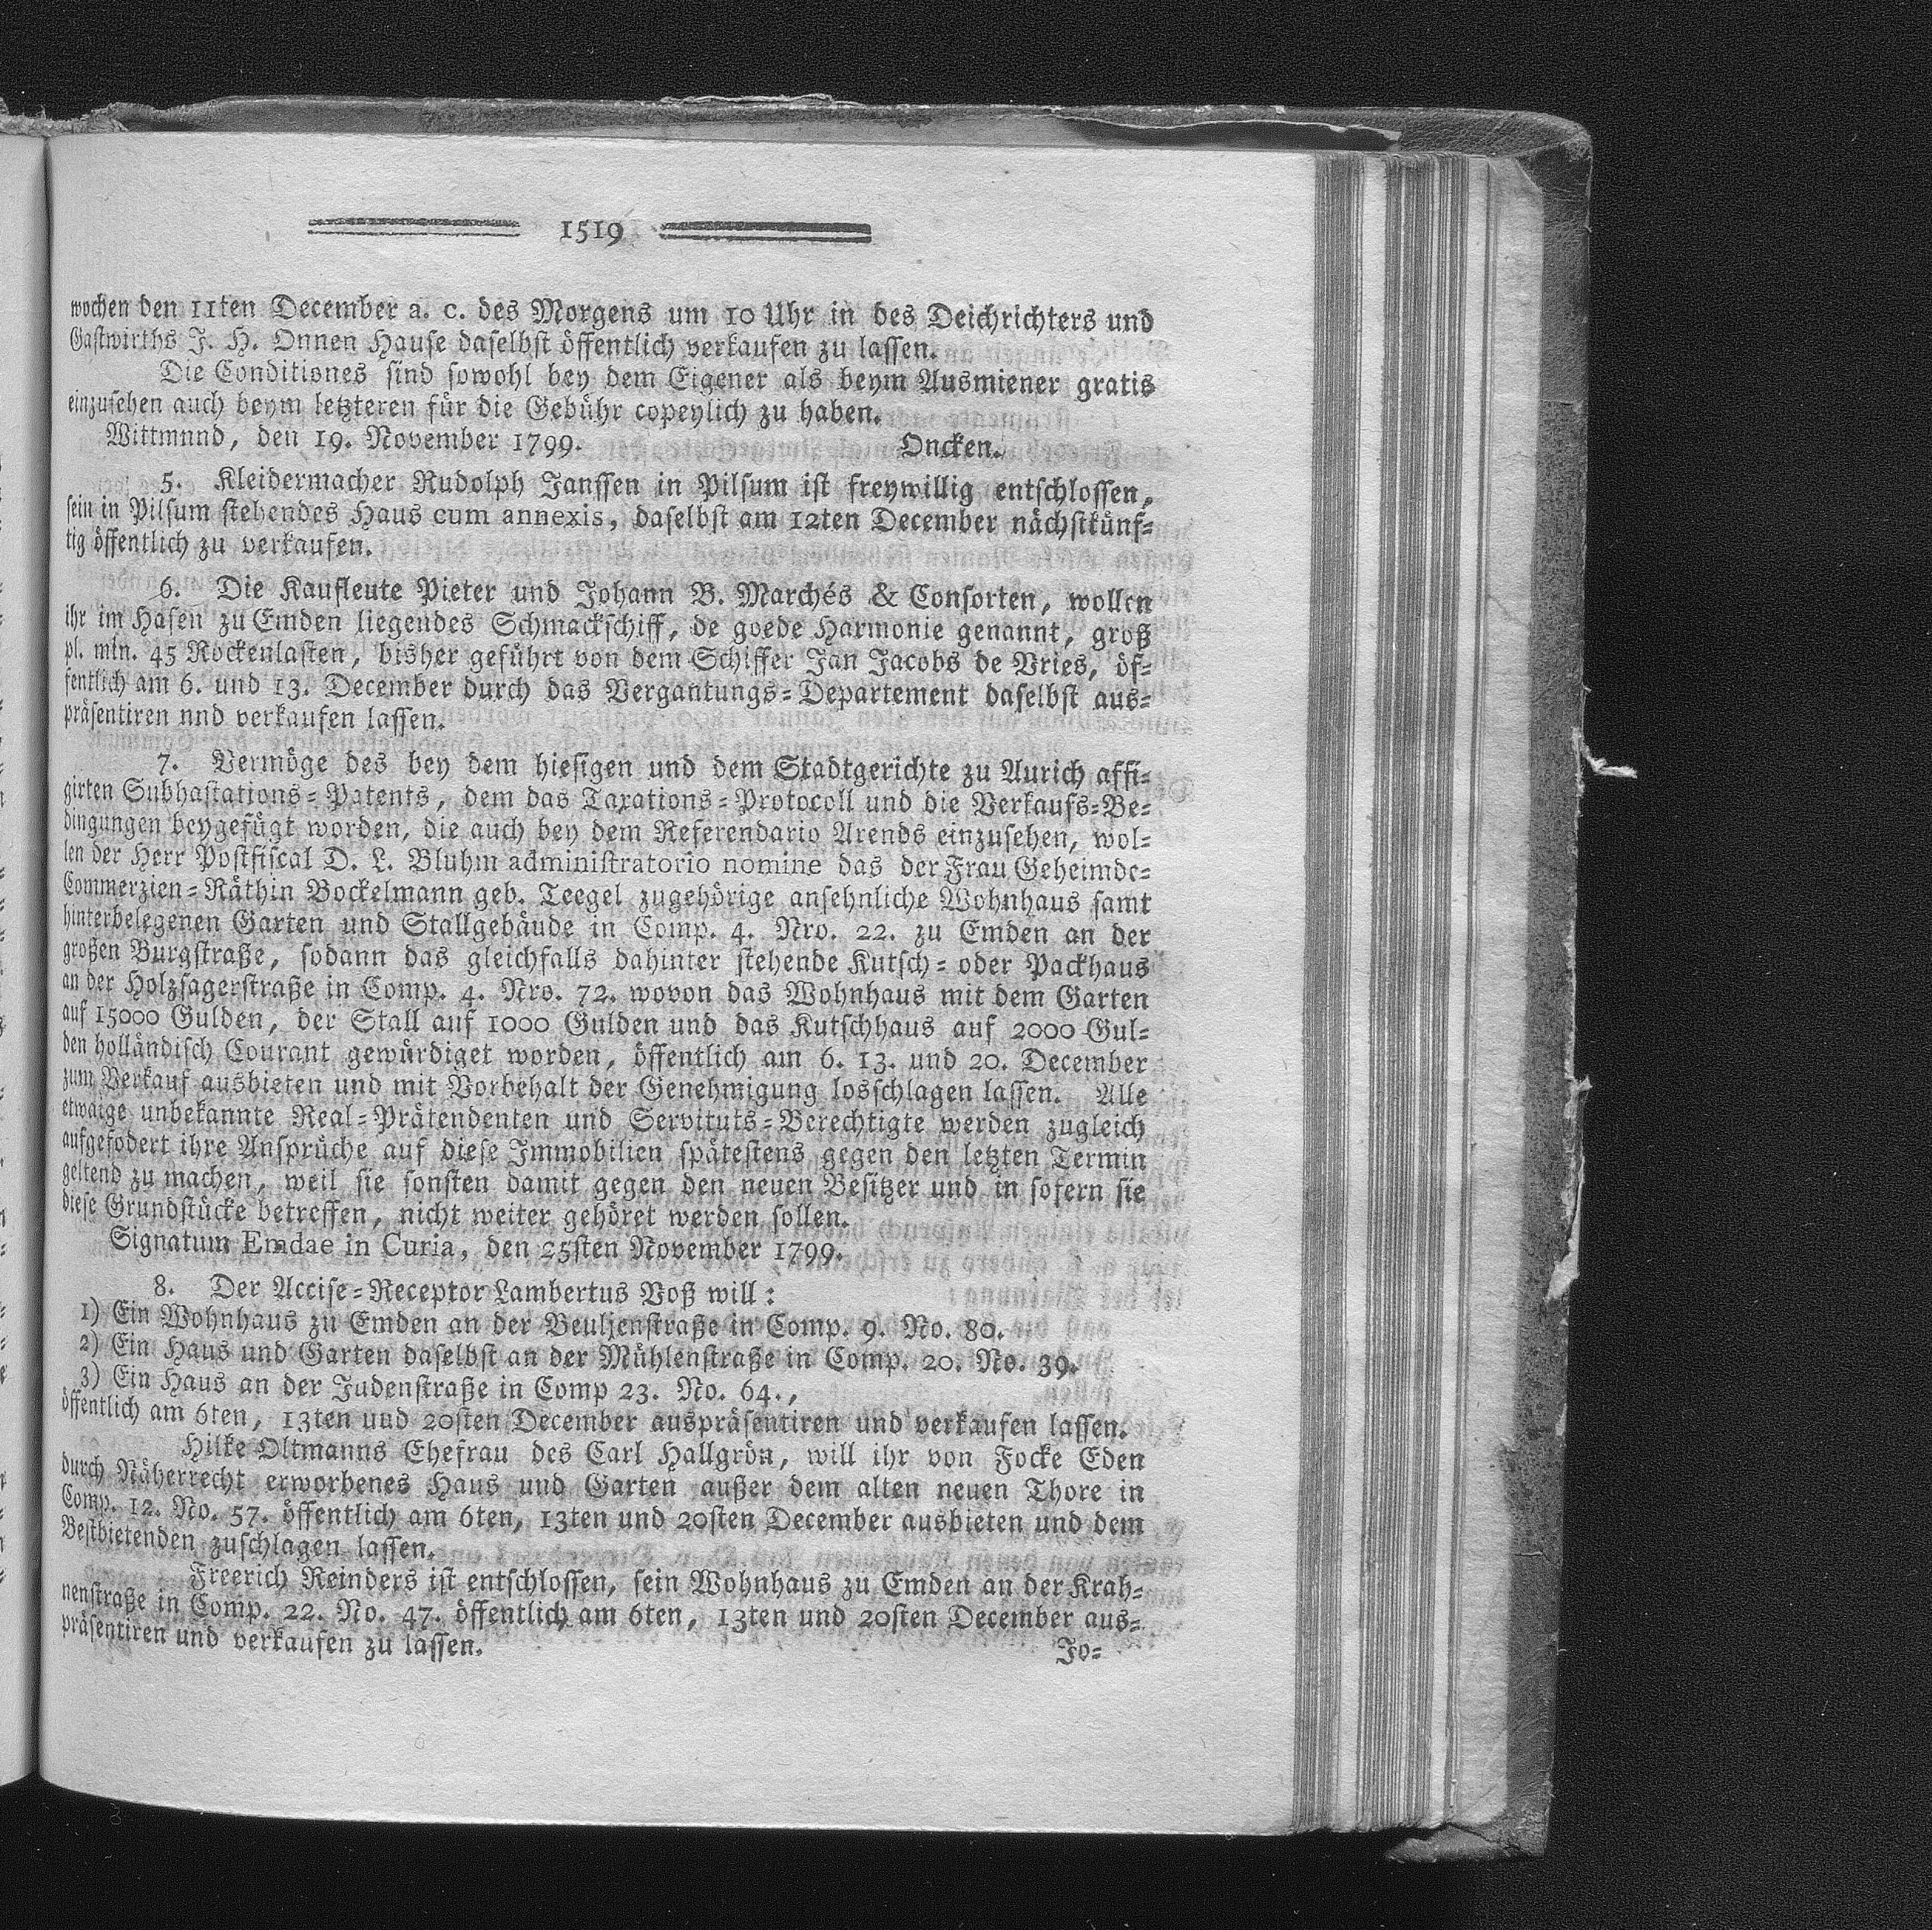 1519
wochen den 11ten December a. c. des Morgens um 10 Uhr in des Deichrichters und
Gastwirths J. H. Onnen Hause daselbst öffentlich verkaufen zu lassen.
Die Conditiones sind sowohl bey dem Eigener als beym Ausmiener gratis
einzusehen auch beym letzteren für die Gebühr copeylich zu haben.
Wittmnnd, den 19. November 1799. Oncken.
5. Kleidermacher Rudolph Janssen in Pilsum ist freywillig entschlossen,
sein in Pilsum stehendes Haus cum annexis, daselbst am 12ten December nächstkünf=
tig öffentlich zu verkaufen.
6. Die Kaufleute Pieter und Johann B. Marchés & Consorten, wollen
ihr im Hafen zu Emden liegendes Schmackschiff, de goede Harmonie genannt, groß
pl. mln. 45 Rockenlasten, bisher geführt von dem Schiffer Jan Jacobs de Vries, öf=
fentlich am 6. und 13. December durch das Vergantungs=Departement daselbst aus=
präsentiren nnd verkaufen lassen.
7. Vermöge des bey dem hiesigen und dem Stadtgerichte zu Aurich affi=
girten Subhastations=Patents, dem das Taxations=Protocoll und die Verkaufs=Be=
dingungen beygefügt worden, die auch bey dem Referendario Arends einzusehen, wol=
len der Herr Postfiscal D. L. Bluhm administratorio nomine das der Frau Geheimde=
Commerzien=Räthin Bockelmann geb. Teegel zugehörige ansehnliche Wohnhaus samt
hinterbelegenen Garten und Stallgebäude in Comp. 4. Nro. 22. zu Emden an der
großen Burgstraße, sodann das gleichfalls dahinter stehende Kutsch= oder Packhaus
an der Holzsagerstraße in Comp. 4. Nro. 72. wovon das Wohnhaus mit dem Garten
auf 15000 Gulden, der Stall auf 1000 Gulden und das Kutschhaus auf 2000 Gul=
den holländisch Courant gewürdiget worden, öffentlich am 6. 13. und 20. December
zum Verkauf ausbieten und mit Vorbehalt der Genehmigung losschlagen lassen. Alle
etwaige unbekannte Real=Prätendenten und Servituts=Berechtigte werden zugleich
aufgefodert ihre Ansprüche auf diese Immobilien spätestens gegen den letzten Termin
geltend zu machen, weil sie sonsten damit gegen den neuen Besitzer und in sofern sie
diese Grundstücke betreffen, nicht weiter gehöret werden sollen.
Signatum Emdae in Curia, den 25sten November 1799.
8. Der Accise=Receptor Lambertus Voß will:
1) Ein Wohnhaus zu Emden an der Beuljenstraße in Comp. 9. No. 80.
2) Ein Haus und Garten daselbst an der Mühlenstraße in Comp. 20. No. 39.
3) Ein Haus an der Judenstraße in Comp 23. No. 64.,
öffentlich am 6ten, 13ten und 20sten December auspräsentiren und verkaufen lassen.
Hilke Oltmanns Ehefrau des Carl Hallgrön, will ihr von Focke Eden
durch Näherrecht erworbenes Haus und Garten außer dem alten neuen Thore in
Comp. 12. No. 57. öffentlich am 6ten, 13ten und 20sten December ausbieten und dem
Bestbietenden zuschlagen lassen.
Freerich Reinders ist entschlossen, sein Wohnhaus zu Emden an der Krah=
nenstraße in Comp. 22. No. 47. öffentlich am 6ten, 13ten und 20sten December aus=
präsentiren und verkaufen zu lassen.
Jo=